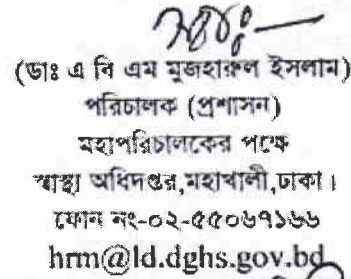 (ডাঃ এ বি এম মুজহারুল ইসলাম)
পরিচালক (প্রশাসন)
মহাপরিচালকের পক্ষে
স্বাস্থ্য অধিদপ্তর,মহাখালী,ঢাকা।
ফোন নং-০২-৫৫০৬৭১৬৬
hrm@ld.dghs.gov.bd